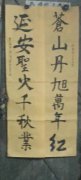 蒼山丹旭萬年紅
延安聖火千秋業